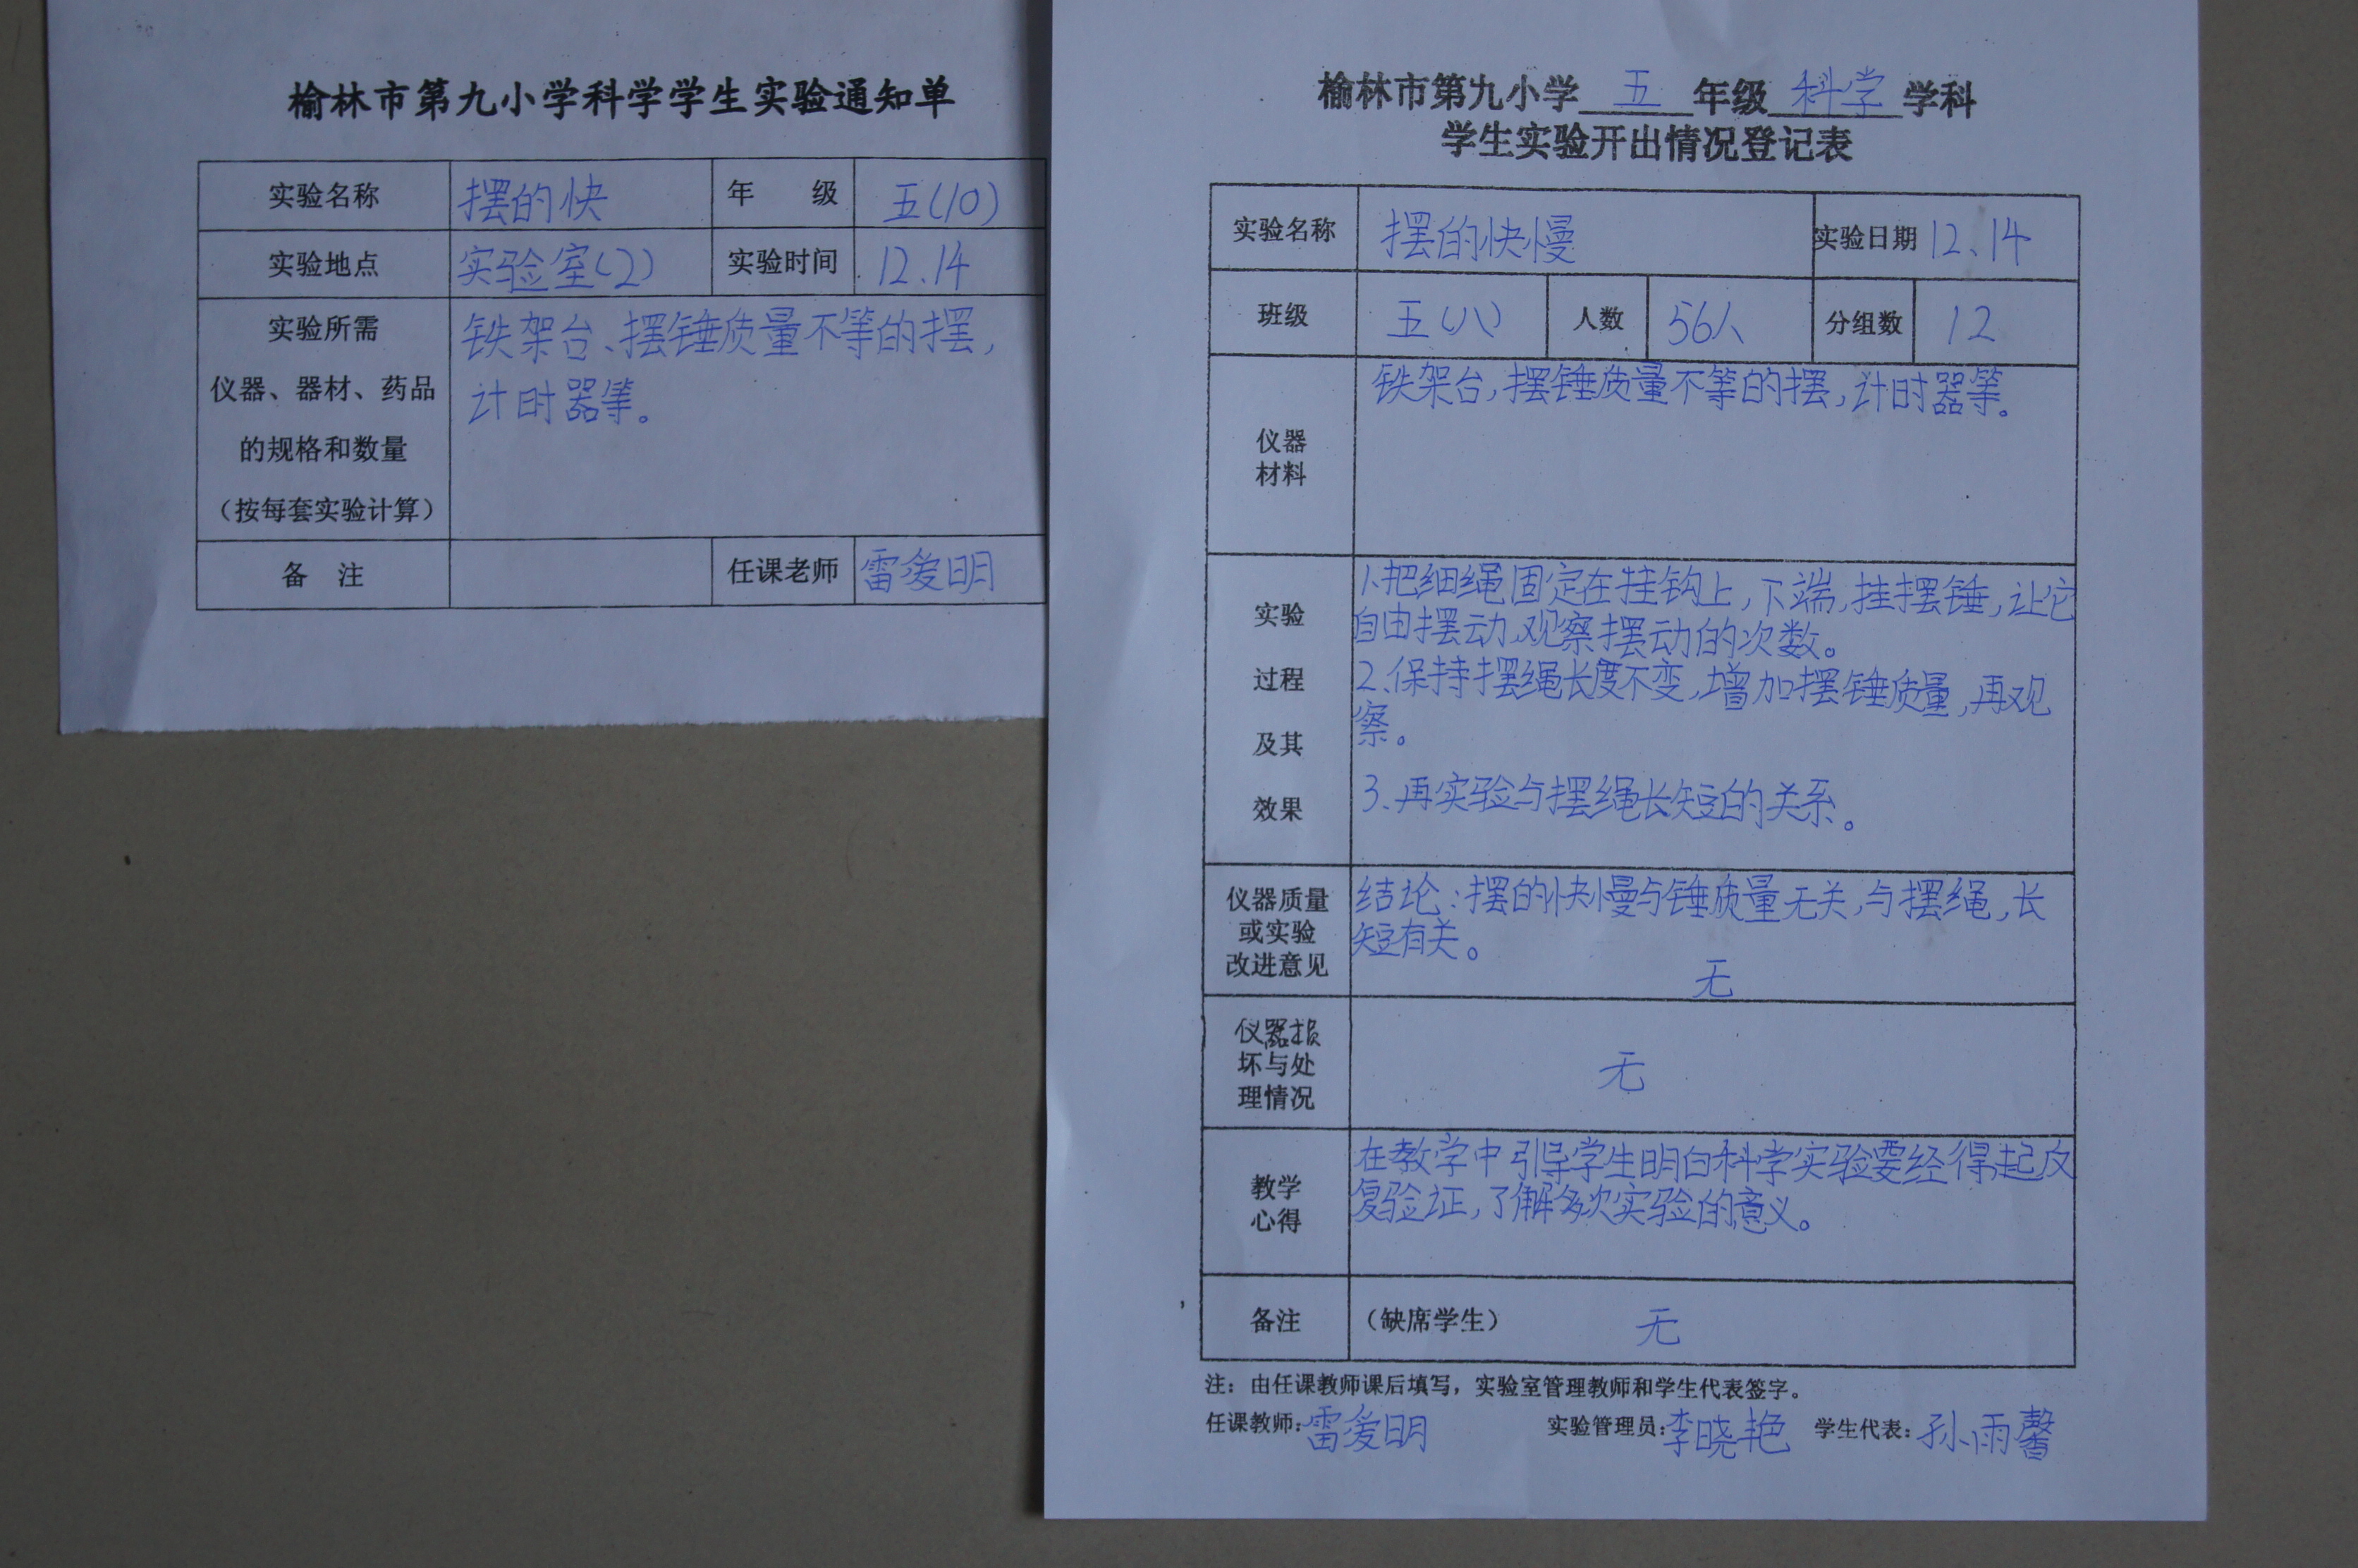 榆林市第九小学科学学生实验通知单
实验名称 摆的快 年 级 五(10)
实验地点 实验室(2) 实验时间 12.14
实验所需
仪器、器材、药品
的规格和数量
（按每套实验计算）
铁架台、摆锤质量不等的摆,
计时器等。
备 注 任课老师 雷爱明
榆林市第九小学 五 年级 科学 学科
学生实验开出情况登记表
实验名称 摆的快慢 实验日期 12、14
班级 五(八) 人数 56人 分组数 12
仪器
材料
铁架台,摆锤质量不等的摆,计时器等。
实验
过程
及其
效果
1、把细绳固定在挂钩上,下端,挂摆锤,让它
自由摆动,观察摆动的次数。
2、保持摆绳长度不变,增加摆锤质量,再观
察。
3、再实验与摆绳长短的关系。
仪器质量
或实验
改进意见
结论:摆的快慢与锤质量无关,与摆绳,长
短有关。
无
仪器损
坏与处
理情况
无
教学
心得
在教学中引导学生明白科学实验要经得起反
复验证,了解多次实验的意义。
备注 （缺席学生） 无
注：由任课教师课后填写，实验室管理教师和学生代表签字。
任课教师:雷爱明 实验管理员:李晓艳 学生代表:孙雨馨